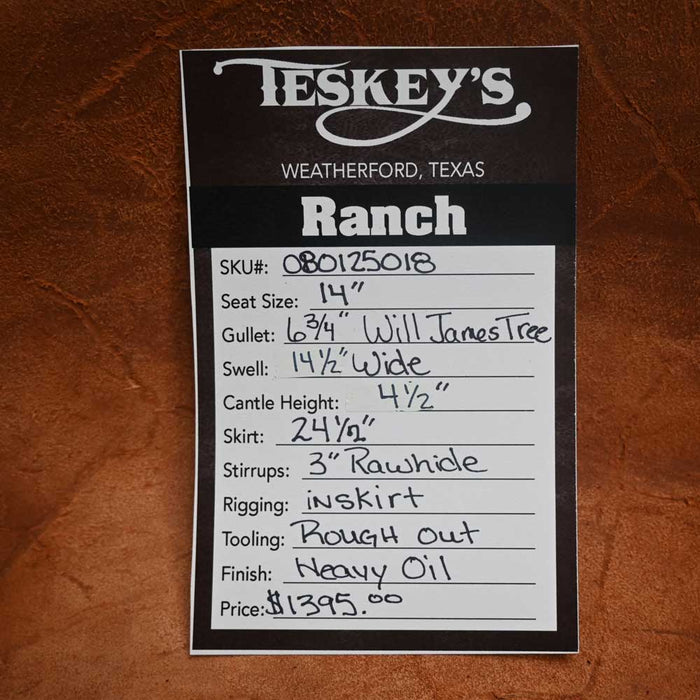 TESKEY'S
WEATHERFORD, TEXAS
Ranch
SKU#: 080125018
Seat Size: 14"
Gullet: 6 3/4" Will James Tree
Swell: 14 1/2" Wide
Cantle Height: 4 1/2"
Skirt: 24 1/2"
Stirrups: 3" Rawhide
Rigging: inskirt
Tooling: Rough out
Finish: Heavy Oil
Price: $1395.00